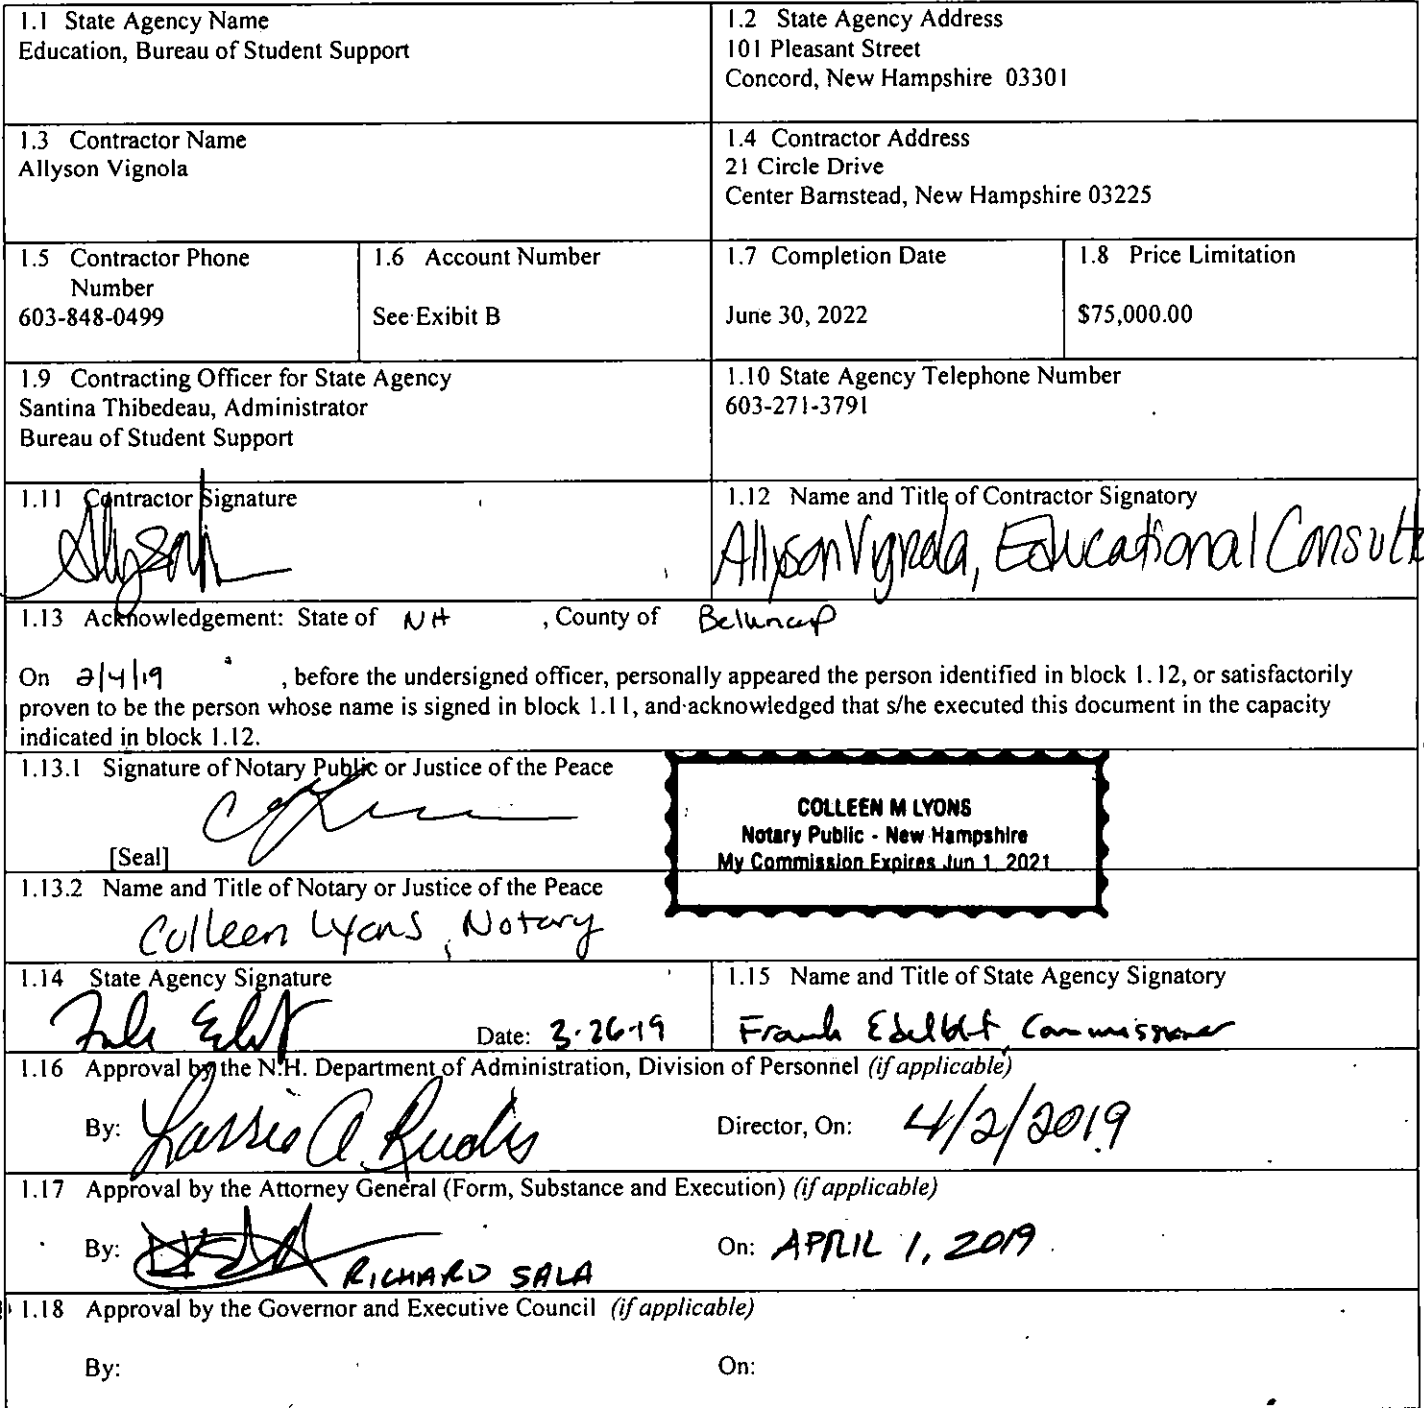 1.1 State Agency Name
Education, Bureau of Student Support
1.2 State Agency Address
101 Pleasant Street
Concord, New Hampshire 03301
1.3 Contractor Name
Allyson Vignola
1.4 Contractor Address
21 Circle Drive
Center Barnstead, New Hampshire 03225
1.5 Contractor Phone
Number
603-848-0499
1.6 Account Number
See Exibit B
1.7 Completion Date
June 30, 2022
1.8 Price Limitation
$75,000.00
1.9 Contracting Officer for State Agency
Santina Thibedeau, Administrator
Bureau of Student Support
1.10 State Agency Telephone Number
603-271-3791
1.11 Contractor Signature
1.12 Name and Title of Contractor Signatory
Allyson Vignola, Educational Consult
1.13 Acknowledgement: State of NH , County of Belknap
On 2/4/19 , before the undersigned officer, personally appeared the person identified in block 1.12, or satisfactorily
proven to be the person whose name is signed in block 1.11, and acknowledged that s/he executed this document in the capacity
indicated in block 1.12.
1.13.1 Signature of Notary Public or Justice of the Peace
[Seal]
COLLEEN M LYONS
Notary Public - New Hampshire
My Commission Expires Jun 1, 2021
1.13.2 Name and Title of Notary or Justice of the Peace
Colleen Lyons, Notary
1.14 State Agency Signature
Date: 3-26-19
1.15 Name and Title of State Agency Signatory
Frank Edelblut, Commissioner
1.16 Approval by the N.H. Department of Administration, Division of Personnel (if applicable)
By: Director, On: 4/2/2019
1.17 Approval by the Attorney General (Form, Substance and Execution) (if applicable)
By: RICHARD SALA On: APRIL 1, 2019
1.18 Approval by the Governor and Executive Council (if applicable)
By: On: